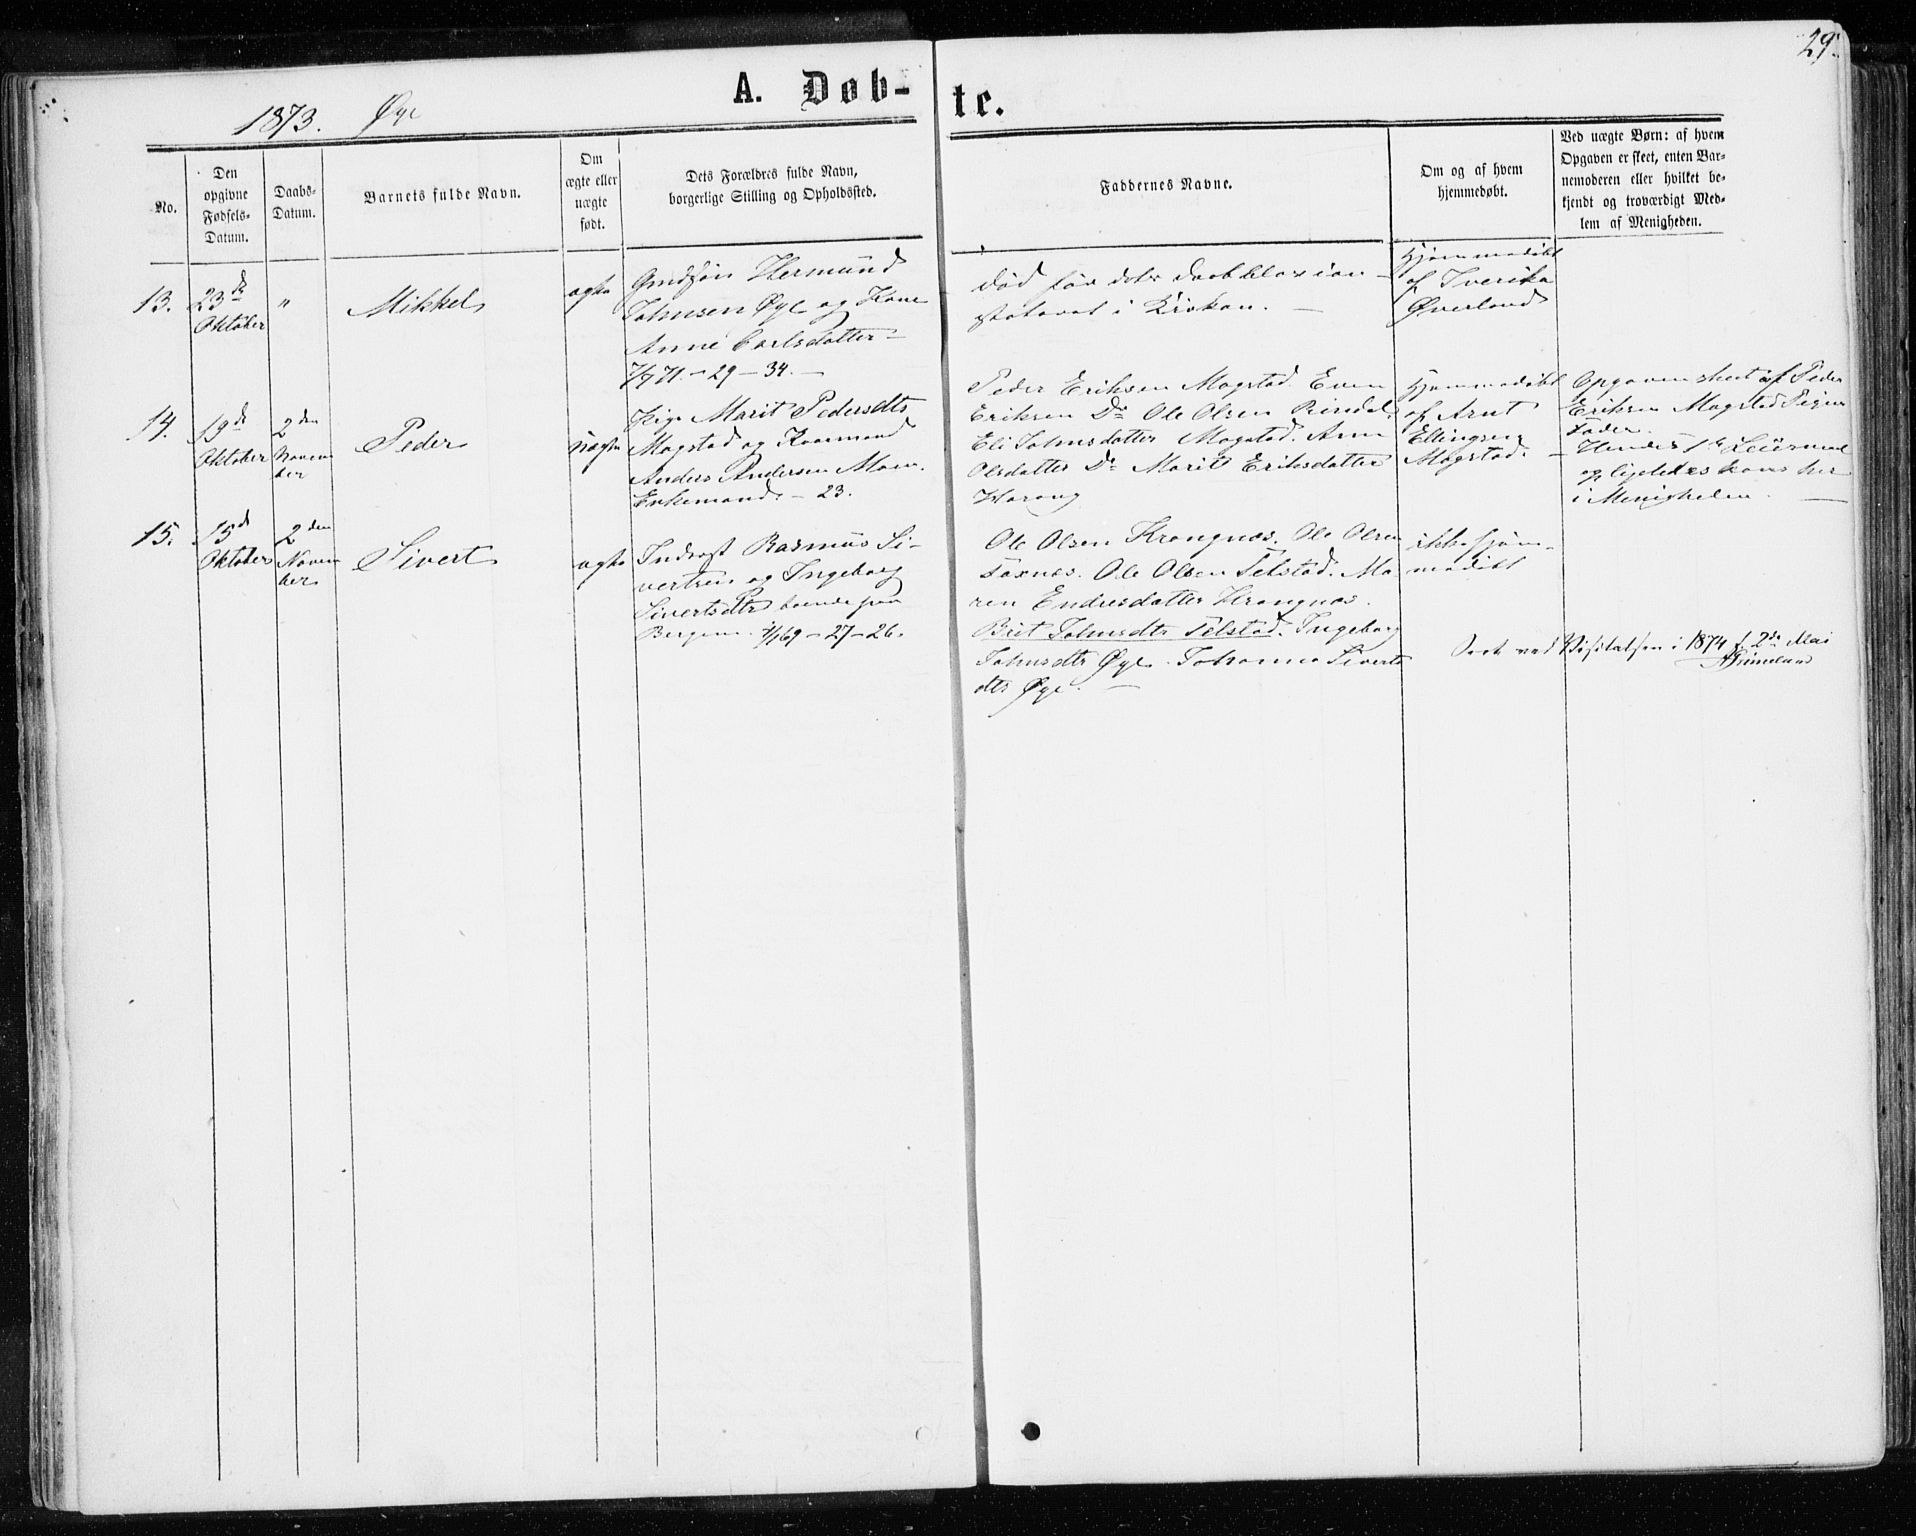 29.
1873. Øye
A. Døb-te.
No.
Den
opgivne
Fødsels-
Datum.
Daabs-
Datum.
Barnets fulde Navn.
Om
ægte eller
uægte
født.
Dets Forældres fulde Navn,
borgerlige Stilling og Opholdssted.
Faddernes Navne.
Om og af hvem
hjemmedøbt.
Ved uægte Børn: af hvem
Opgaven er skeet, enten Bar-
nemoderen eller hvilket be-
kjendt og troværdigt Med-
lem af Menigheden.
13.
23de
Oktober
"
Mikkel
ægte
Hermund
Johnsen Øye og Kone
Anne Carlsdatter -
7/7 71. - 29 - 34. -
død før dets Daab blev con-
stateret i Kirken. -
Hjemmedøbt
af Sverike
Øverland
14.
19de
Oktober
2den
Novem
ber
Peder
uægte
Pige Marit Pedersdtr
Mogstad og
Anders Andersen Moen.
Enkemand. - 23.
Peder Eriksen Mogstad. Even
Eriksen Ds Ole Olsen Rindal.
Eli Johnsdatter Mogstad. Ann
Olsdatter Ds Marit Eriksdatter
Harang
Hjemmedøbt
af Arnt
Ellingsen
Mogstad.
Opgaven skeet af Peder
Eriksen Mogstad Pigens
Fader. -
Hendes 1ste Leiermaal
og ligeledes hans her
i Menigheden. -
15.
15de
Oktober
2den
Novem
ber
Sivert
ægte
Inderst Rasmus Si-
vertsen og Ingeborg
Sivertsdtr boende paa
Bergem. 69 - 27 - 26.
Ole Olsen Krangnæs. Ole Olsen
Foxnæs. Ole Olsen Telstad. Ma-
ren Endresdatter Krangnæs.
Brit Johnsdtr Telstad. Ingeborg
Johnsdtr Øye. Johanna Siverts
dtr Øye. -
ikke hjem-
medøbt
Seet ved Visitatsen i 1874 d. 2de Mai
Grimelund